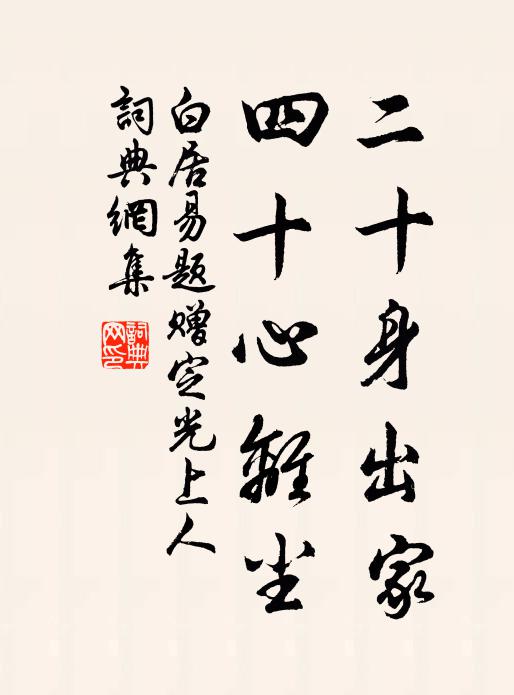 二十身出家
四十心離尘
白居易题赠定光上人
詞典網集
詞典
网印